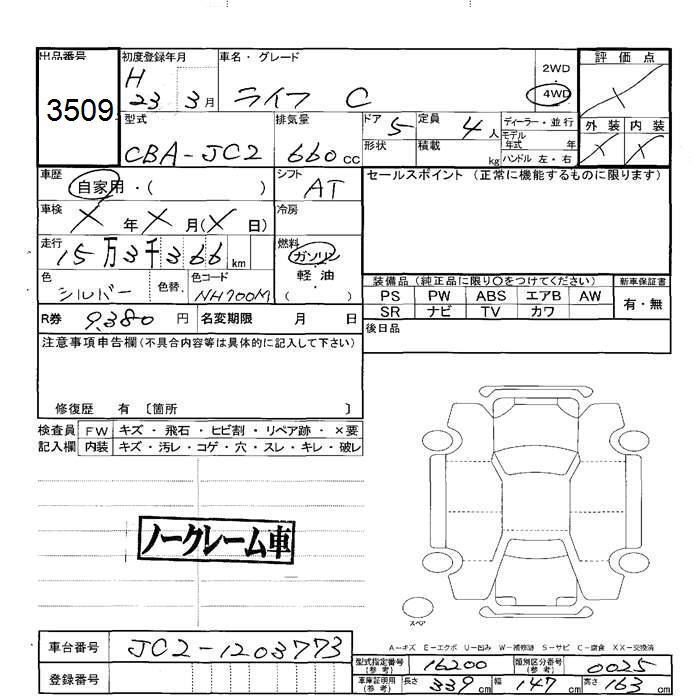 出品番号 初度登録年月 車名・グレード 評価点
3509 H 23 3月 ライフ C 2WD 4WD ×
型式 排気量 ドア 5 定員 4人 ディーラー・並行 外装 内装
CBA-JC2 660cc 形状 積載 kg モデル年式 年 ハンドル 左・右 × ×
車歴 自家用・( ) シフト AT セールスポイント (正常に機能するものに限ります)
車検 × 年 × 月(× 日) 冷房
走行 15万3千366km 燃料 ガソリン・軽油 ( )
色 シルバー 色替 色コード NH700M
装備品 (純正品に限り〇をつけてください) 新車保証書
PS PW ABS エアB AW 有・無
SR ナビ TV カワ
R券 9,380円 名変期限 月 日 後日品
注意事項申告欄(不具合内容等は具体的に記入して下さい)
修復歴 有 〔箇所 〕
検査員 FW キズ・飛石・ヒビ割・リペア跡・×要
記入欄 内装 キズ・汚レ・コゲ・穴・スレ・キレ・破レ
ノークレーム車
スペア
A-キズ E-エクボ U-凹み W-補修跡 S-サビ C-腐食 XX-交換済
車台番号 JC2-1203773
型式指定番号 (参考) 16200 類別区分番号 (参考) 0025
登録番号 車庫証明用 (参考) 長さ 339cm 幅 147cm 高さ 163cm